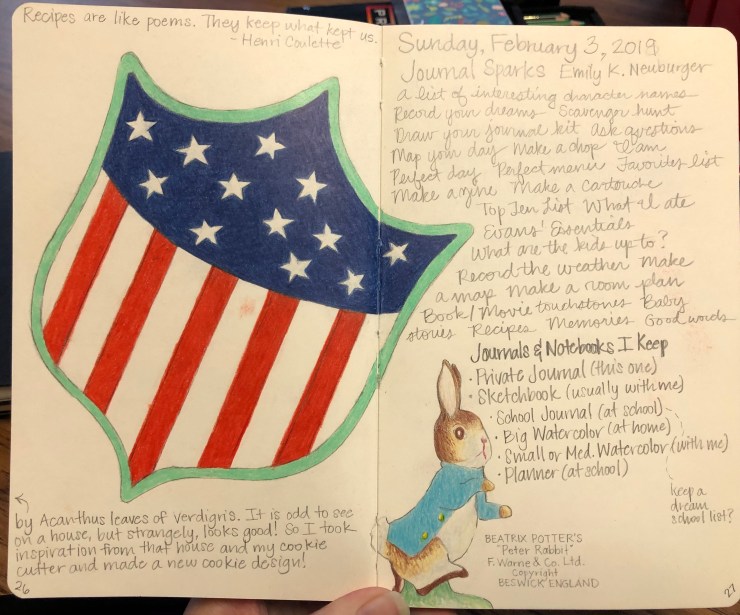 Recipes are like poems. They keep what kept us.
- Henri Coulette
by Acanthus leaves of verdigris. It is odd to see
on a house, but strangely, looks good! So I took
inspiration from that house and my cookie
cutter and made a new cookie design!
26
Sunday, February 3, 2019
Journal Sparks Emily K. Neuburger
a list of interesting character names
Record your dreams Scavenger hunt
Draw your journal kit ask questions
Map your day Make a shop I am
Perfect day Perfect menu Favorites list
Make a zine Make a cartouche
Top Ten List What I ate
Evans' Essentials
What are the kids up to?
Record the weather Make
a map Make a room plan
Book/Movie touchstones Baby
stories Recipes Memories Good words
Journals & Notebooks I Keep
· Private Journal (this one)
· Sketchbook (usually with me)
· School Journal (at school)
· Big Watercolor (at home)
· Small or Med. Watercolor (with me)
· Planner (at school)
keep a
dream
school list?
BEATRIX POTTER'S
"Peter Rabbit"
F. Warne & Co. Ltd.
Copyright
BESWICK ENGLAND
27